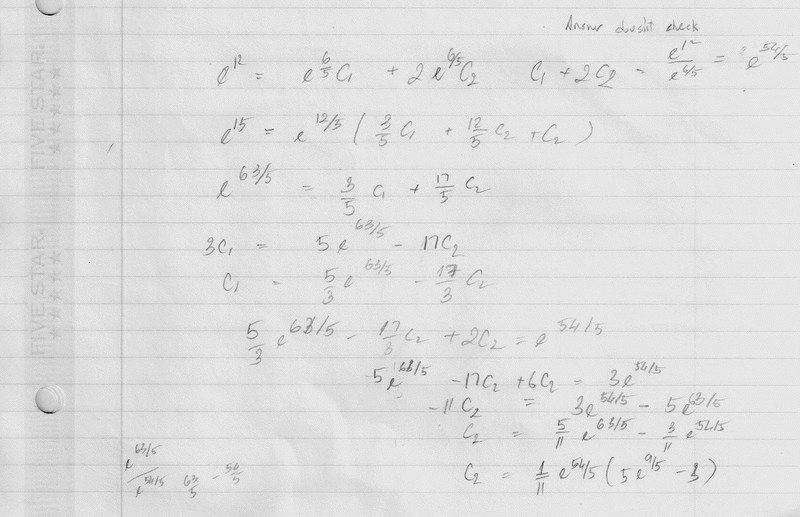 Answer doesn't check
e^12 = e^(6/5) C₁ + 2e^(6/5) C₂ C₁ + 2C₂ = e^12/e^(6/5) = e^(54/5)
e^15 = e^(12/5) ( 3/5 C₁ + 12/5 C₂ + C₂ )
e^(63/5) = 3/5 C₁ + 17/5 C₂
3C₁ = 5e^(63/5) - 17C₂
C₁ = 5/3 e^(63/5) - 17/3 C₂
5/3 e^(63/5) - 17/3 C₂ + 2C₂ = e^(54/5)
5e^(63/5) - 17C₂ + 6C₂ = 3e^(54/5)
-11 C₂ = 3e^(54/5) - 5e^(63/5)
C₂ = 5/11 e^(63/5) - 3/11 e^(54/5)
e^(63/5)/e^(54/5) 63/5 -
C₂ = 1/11 e^(54/5) ( 5e^(9/5) - 3 )
FIVE STAR.
FIVE STAR.